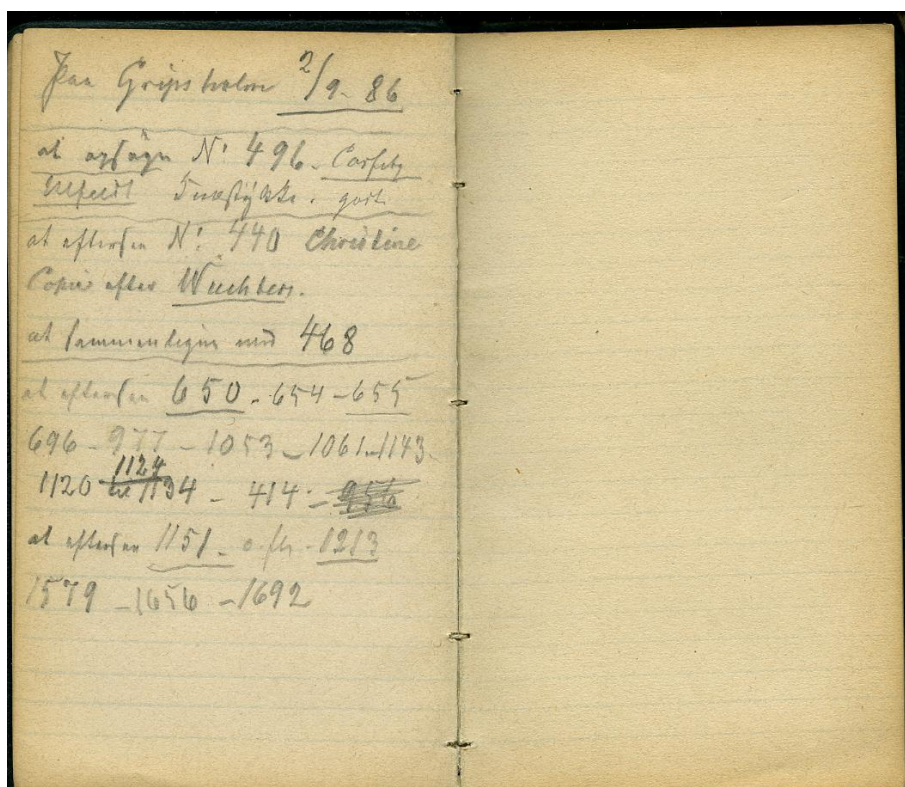 Paa Gripsholm 2/9- 86
at opsøge N: 496 - Corfitz
Ulfeldt Knæstykke. godt
at efterse N: 440 Christine
Copie efter Wuchters.
at sammenligne med 468
at efterse 650 - 654 - 655
696 - 977 - 1053 - 1061 - 1143 -
1124
1120 1134 - 414 - 956
at efterse 1151 - o. flg. - 1213
1579 - 1656 - 1692